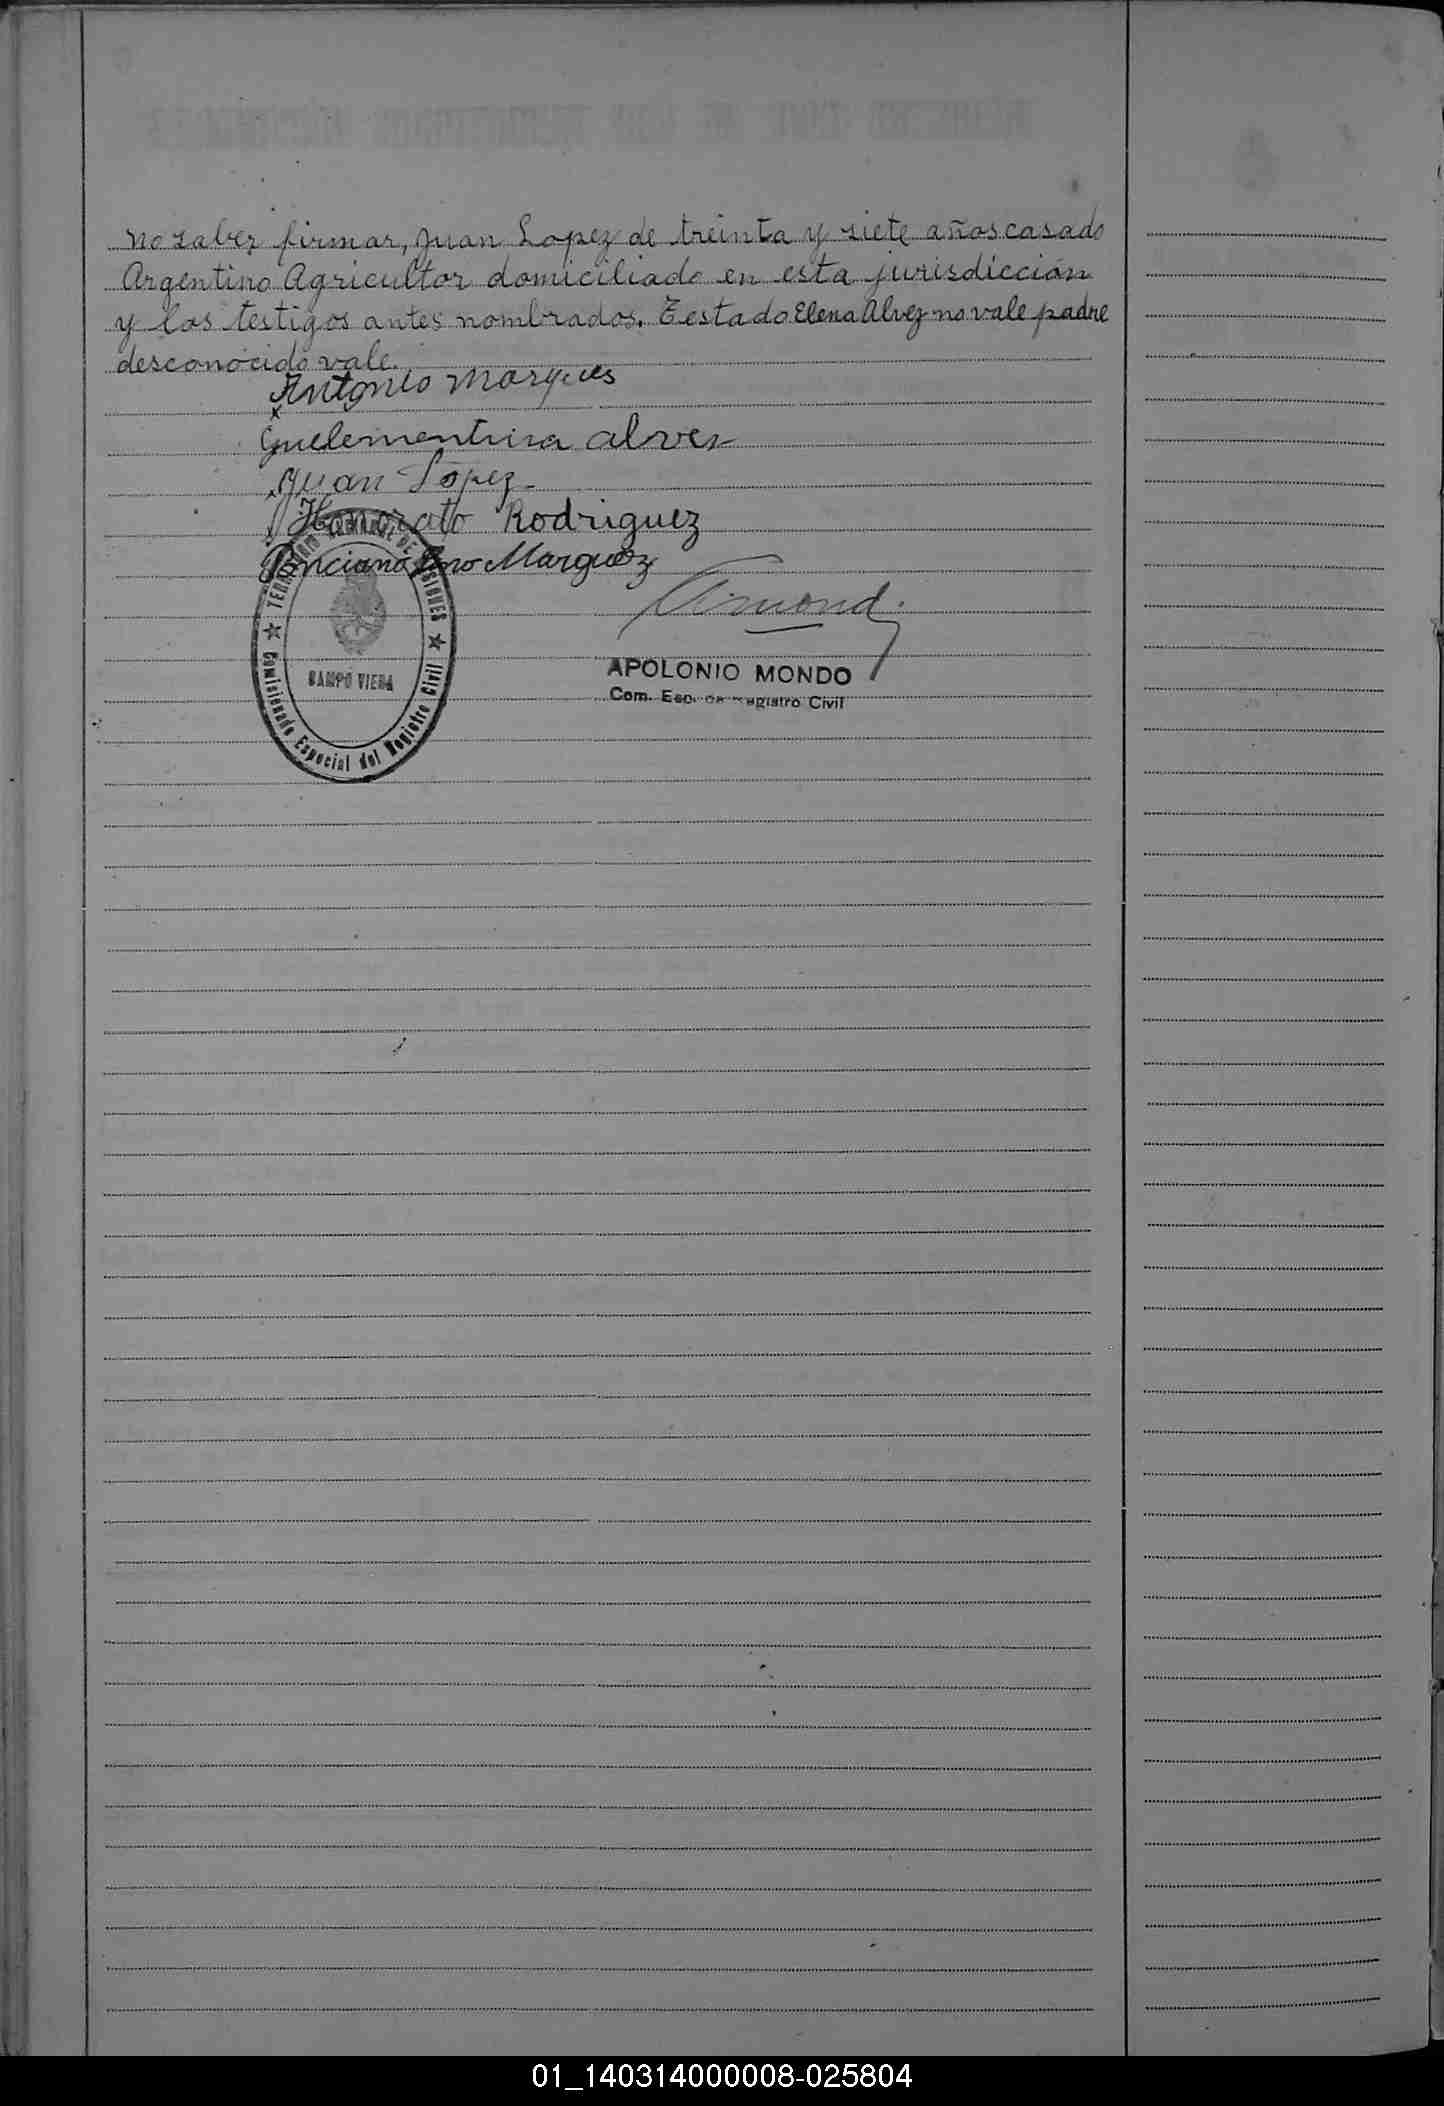 no saber firmar, Juan Lopez de treinta y siete años casado
Argentino Agricultor domiciliado en esta jurisdicción
y los testigos antes nombrados. Testado Elena Alvez no vale padre
desconocido vale.
Antonio Marques
x
Guelementina alves
Juan López
Honorato Rodriguez
Ponciano Lino Marquez
TERRITORIO NACIONAL DE MISIONES
CAMPO VIERA
Comisionado Especial del Registro Civil
APOLONIO MONDO
Com. Esp. de Registro Civil
01_140314000008-025804